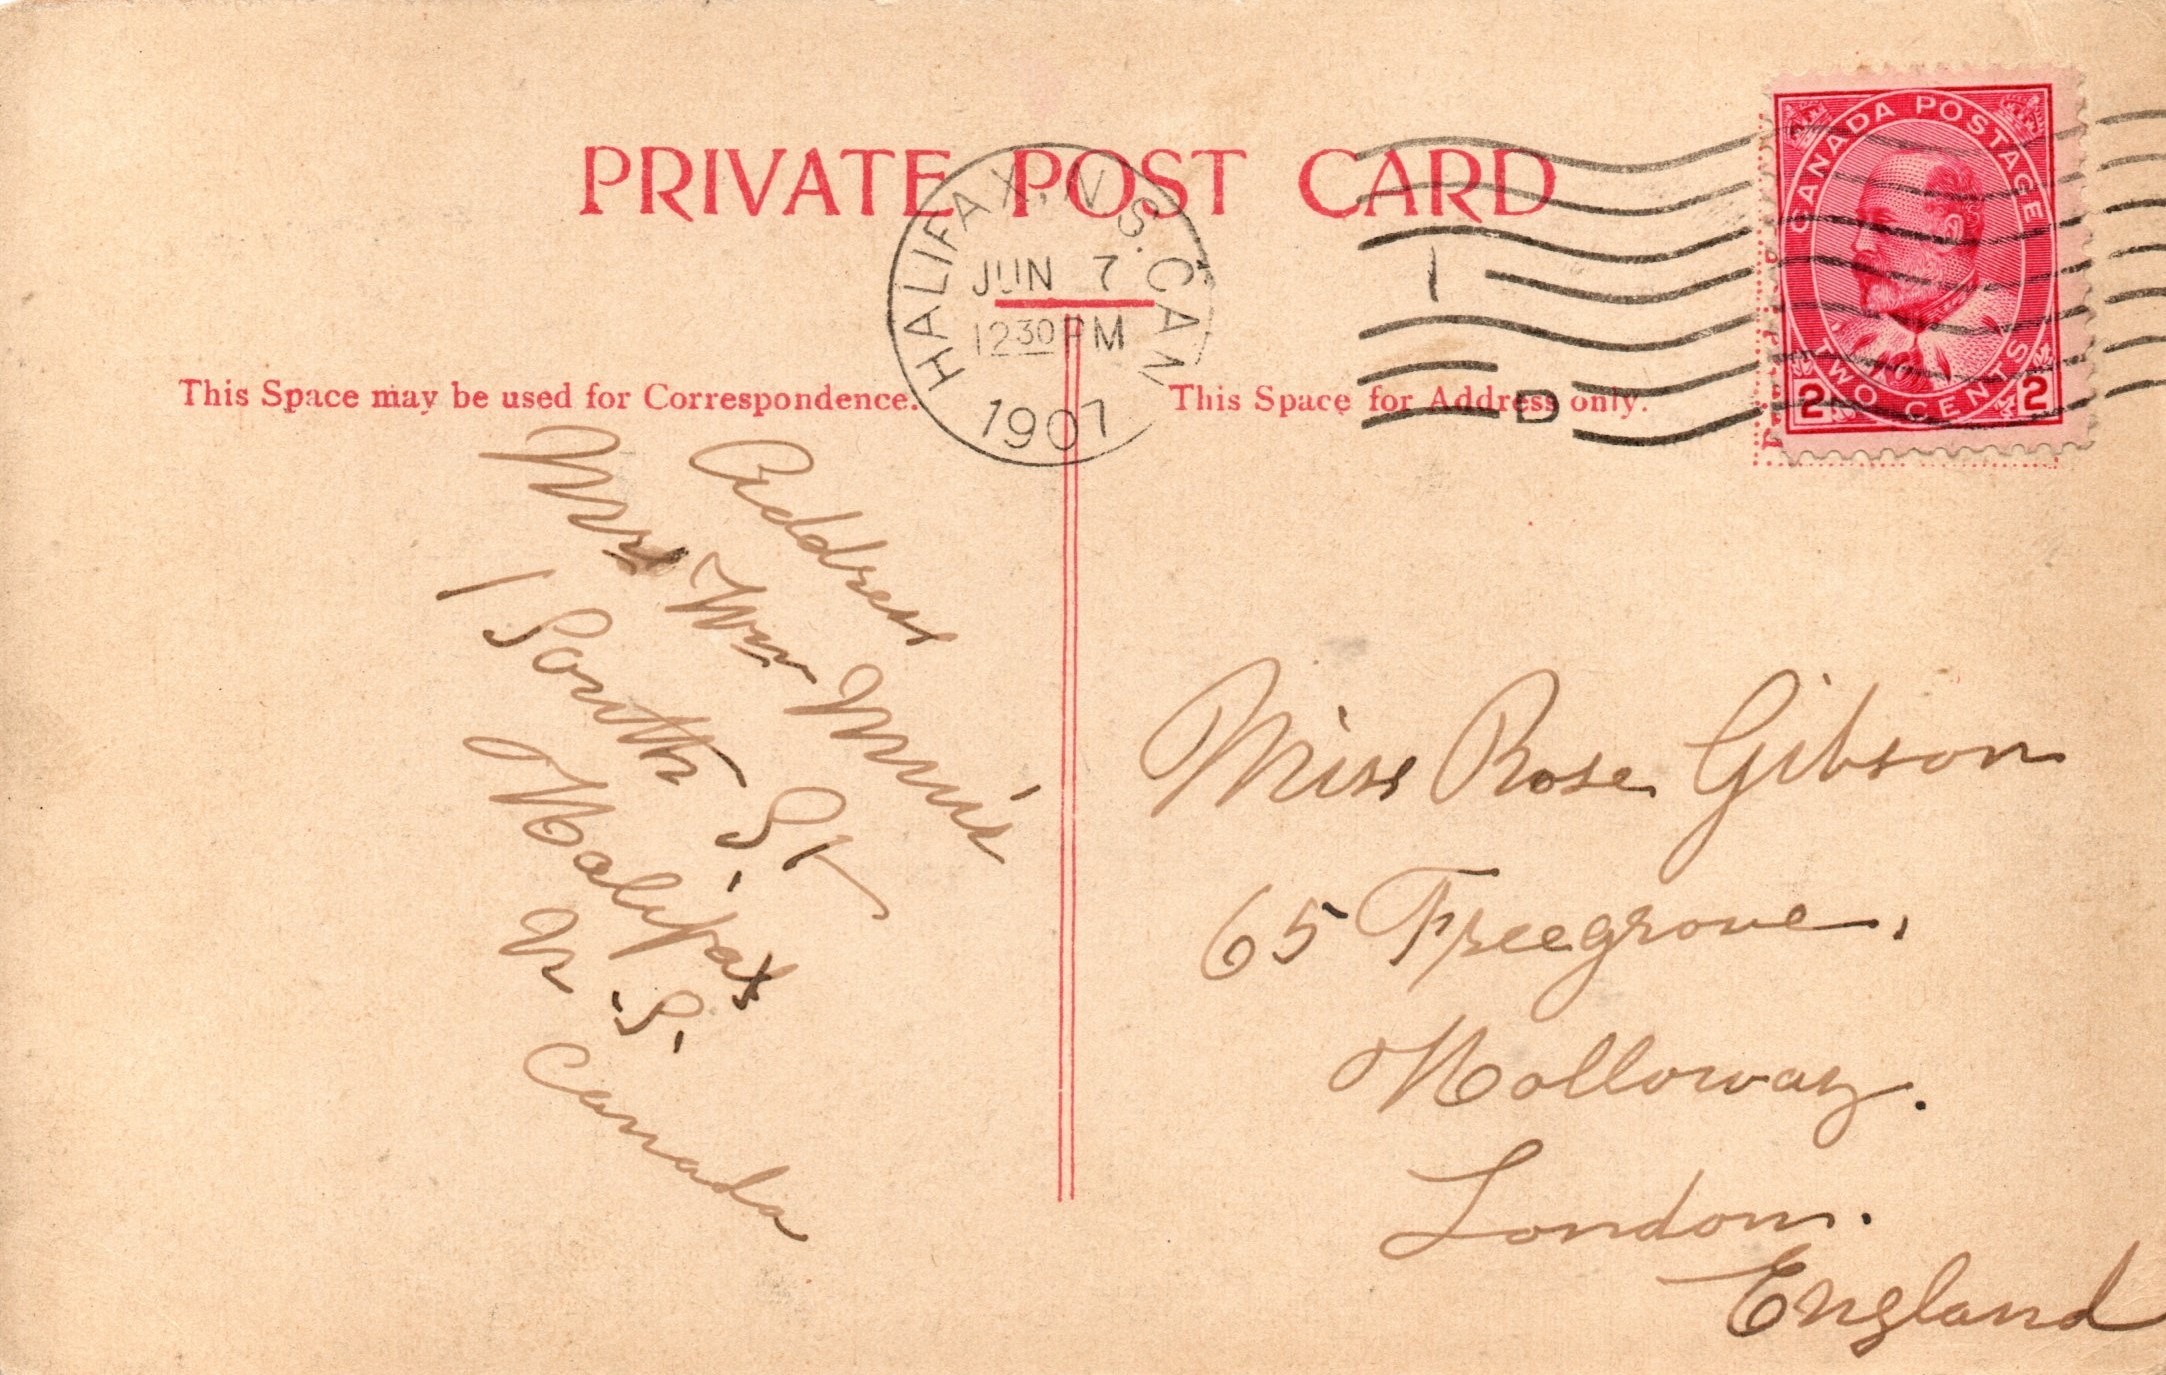 PRIVATE POST CARD
HALIFAX, N.S. CAN.
JUN 7
12 30 PM
1907
1
D
CANADA POSTAGE
TWO CENTS
2 2
This Space may be used for Correspondence.
This Space for Address only.
Address
Mrs Wm
1 South St
Halifax
N.S.
Canada
Miss Rose Gibson
65 Freegrove.
Holloway.
London.
England